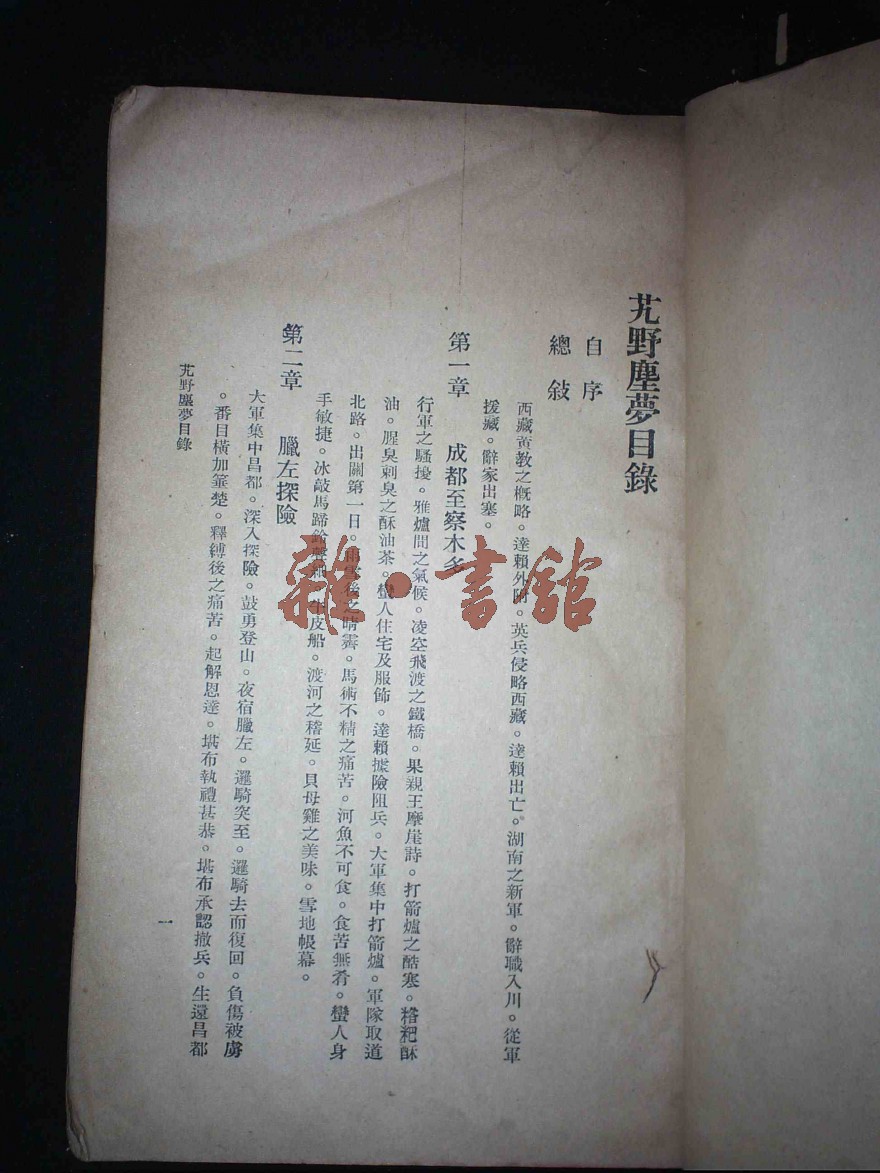 艽野塵夢目錄
自序
總敍
西藏黄教之概略。達賴外附。英兵侵略西藏。達賴出亡。湖南之新軍。辭職入川。從軍
援藏。辭家出塞。
第一章　成都至察木多
行軍之騷擾。雅爐間之氣候。凌空飛渡之鐵橋。果親王摩崖詩。打箭爐之酷寒。糌粑酥
油。腥臭刺臭之酥油茶。蠻人住宅及服飾。達賴據險阻兵。大軍集中打箭爐。軍隊取道
北路。出關第一日。後之晴霽。馬術不精之痛苦。河魚不可食。食苦無肴。蠻人身
手敏捷。冰敲馬蹄鈴聲。牛皮船。渡河之稽延。貝母雞之美味。雪地帳幕。
第二章　臘左探險
大軍集中昌都。深入探險。鼓勇登山。夜宿臘左。邏騎突至。邏騎去而復回。負傷被虜
。番目橫加箠楚。釋縛後之痛苦。起解恩達。堪布執禮甚恭。堪布承認撤兵。生還昌都
艽野塵夢目錄
一
雜·書館